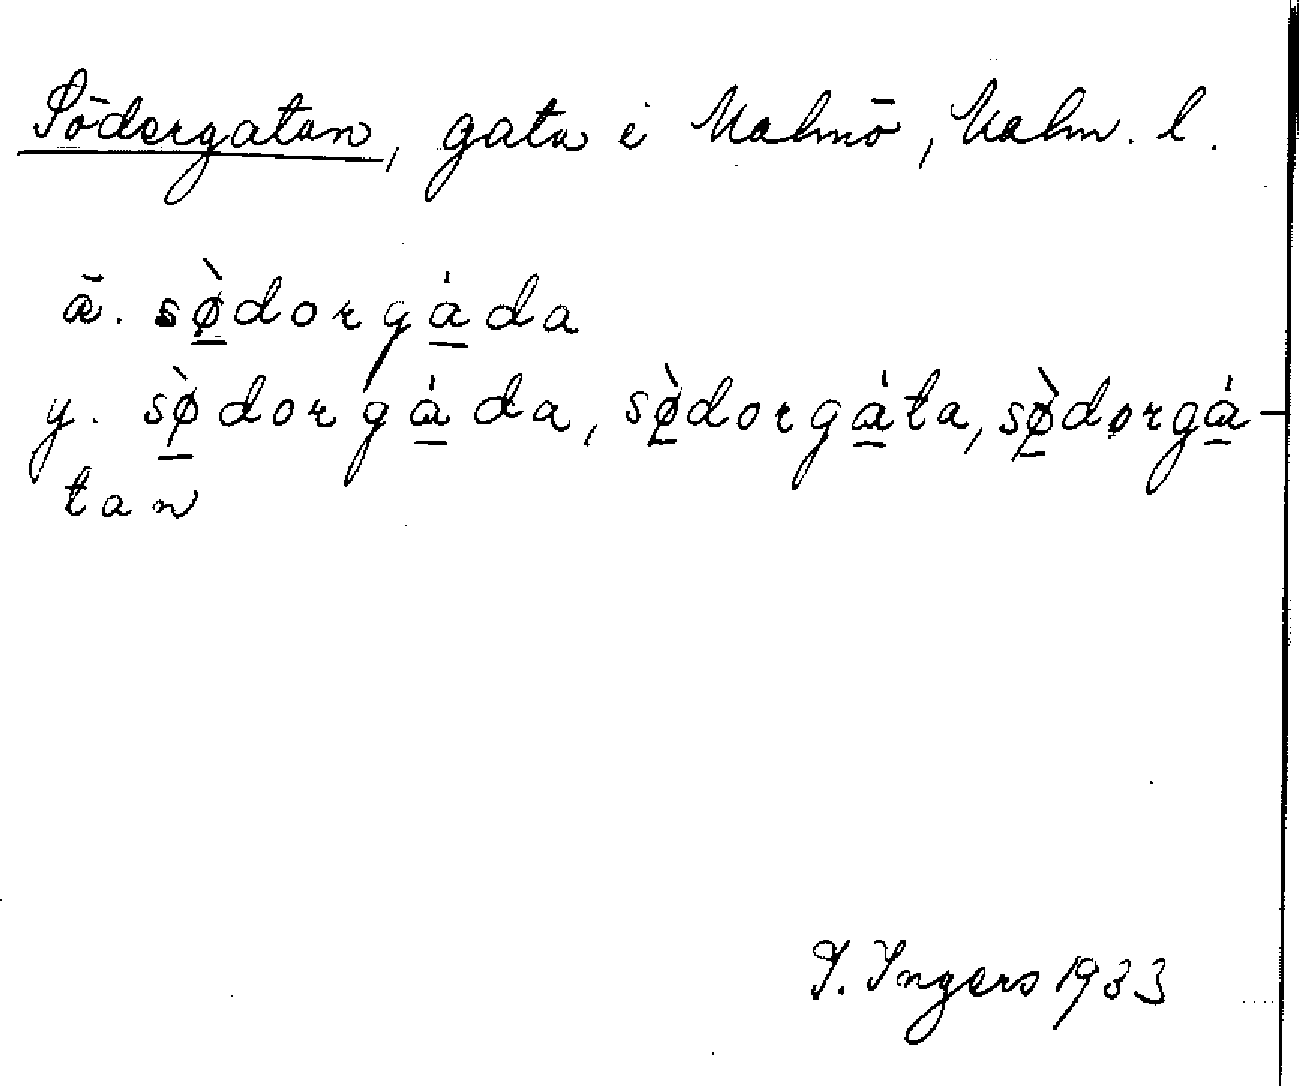 Södergatan, gata i Malmö, Malm. l.
ä. sø̀dorgáda
y. sø̀dorgáda, sø̀dorgáta, sø̀dorgá-
tan
I. Ingers 1933